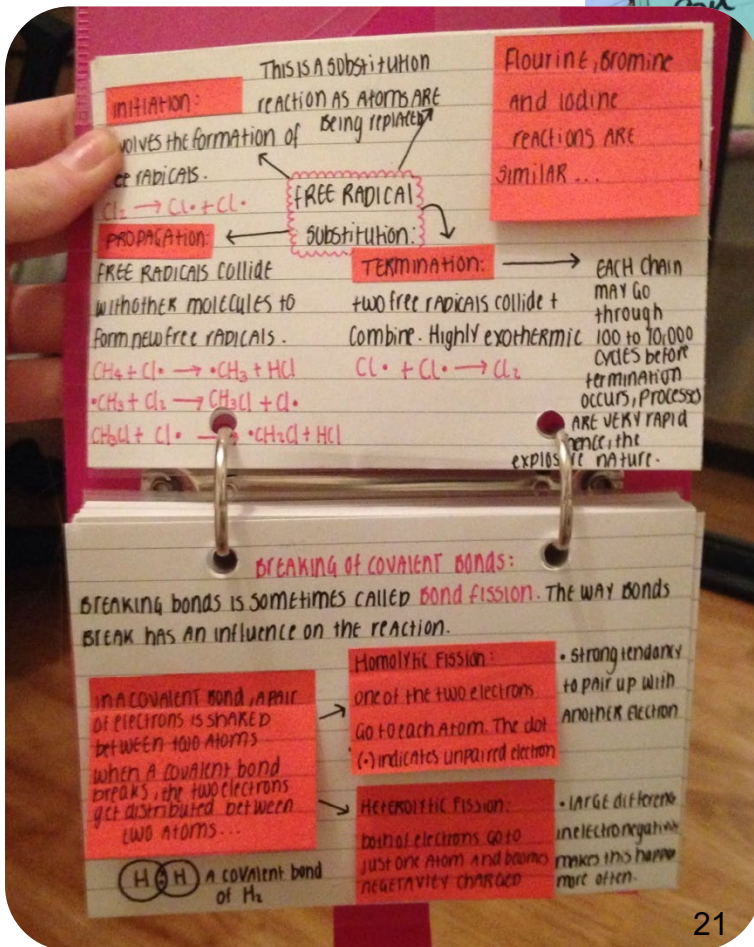 THIS IS A SUBSTITUTION
REACTION AS ATOMS ARE
BEING REPLACED
INITIATION:
VOLVES THE FORMATION OF
EE RADICALS.
Cl₂ → Cl• + Cl•
FREE RADICAL
SUBSTITUTION:
FLOURINE, BROMINE
AND IODINE
REACTIONS ARE
SIMILAR ...
PROPAGATION:
FREE RADICALS COLLIDE
WITH OTHER MOLECULES TO
FORM NEW FREE RADICALS.
CH₄ + Cl• → •CH₃ + HCl
•CH₃ + Cl₂ → CH₃Cl + Cl•
CH₃Cl + Cl• → •CH₂Cl + HCl
TERMINATION:
TWO FREE RADICALS COLLIDE +
COMBINE. HIGHLY EXOTHERMIC
Cl• + Cl• → Cl₂
EACH CHAIN
MAY GO
THROUGH
100 TO 10,000
CYCLES BEFORE
TERMINATION
OCCURS, PROCESSES
ARE VERY RAPID
HENCE, THE
EXPLOSIVE NATURE.
BREAKING OF COVALENT BONDS:
BREAKING BONDS IS SOMETIMES CALLED BOND FISSION. THE WAY BONDS
BREAK HAS AN INFLUENCE ON THE REACTION.
IN A COVALENT BOND, A PAIR
OF ELECTRONS IS SHARED
BETWEEN TWO ATOMS
WHEN A COVALENT BOND
BREAKS, THE TWO ELECTRONS
GET DISTRIBUTED BETWEEN
TWO ATOMS...
HOMOLYTIC FISSION:
ONE OF THE TWO ELECTRONS
GO TO EACH ATOM. THE DOT
(•) INDICATES UNPAIRED ELECTRON
• STRONG TENDANCY
TO PAIR UP WITH
ANOTHER ELECTRON
HETEROLYTIC FISSION:
BOTH OF ELECTRONS GO TO
JUST ONE ATOM AND BECOMES
NEGETAVLEY CHARGED
• LARGE DIFFERENC
IN ELECTRONEGATIVI
MAKES THIS HAPPE
MORE OFTEN.
H H A COVALENT BOND
OF H₂
21